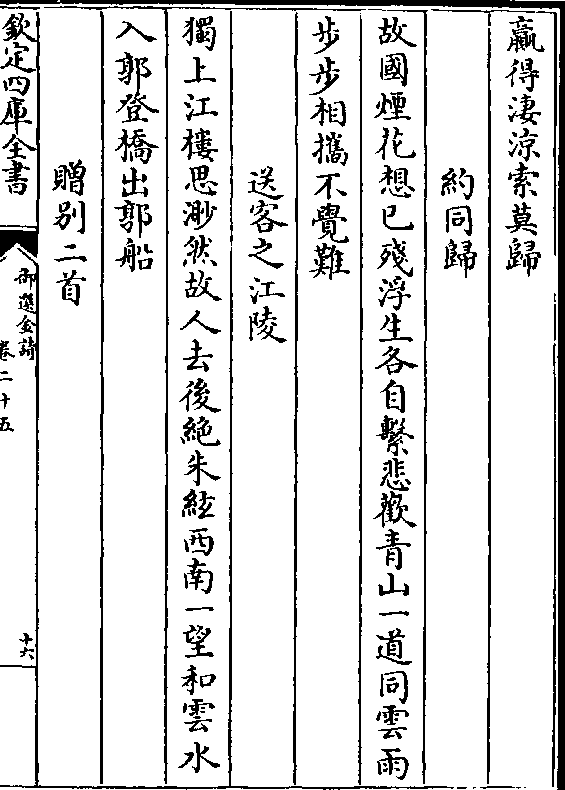 贏得淒涼索莫歸
約同歸
故國煙花想已殘浮生各自繫悲歡青山一道同雲雨
步步相攜不覺難
送客之江陵
獨上江樓思渺然故人去後絶朱絃西南一望和雲水
入郭登橋出郭船
贈别二首
欽定四庫全書
御選金詩
卷二十五
十六